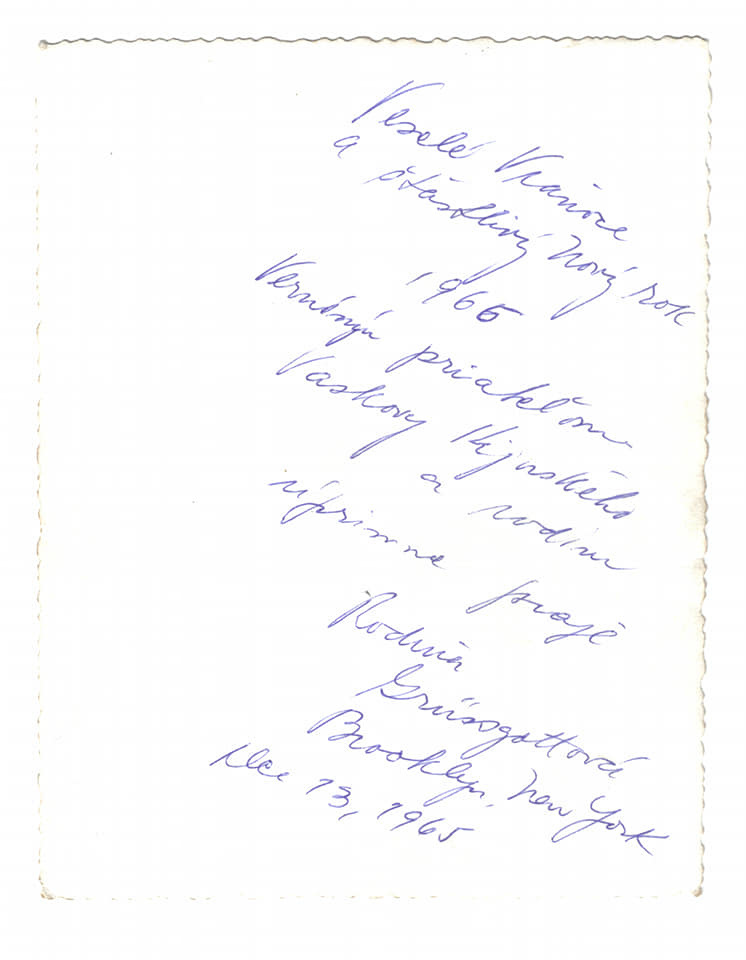 Veselé Vianoce
a štástlivý Nový rok
1966
Verným priateľom
Vaskovy
a rodine
úprimne praje
Rodina
Grüssgottová
Brooklyn, New York
Dec 13, 1965